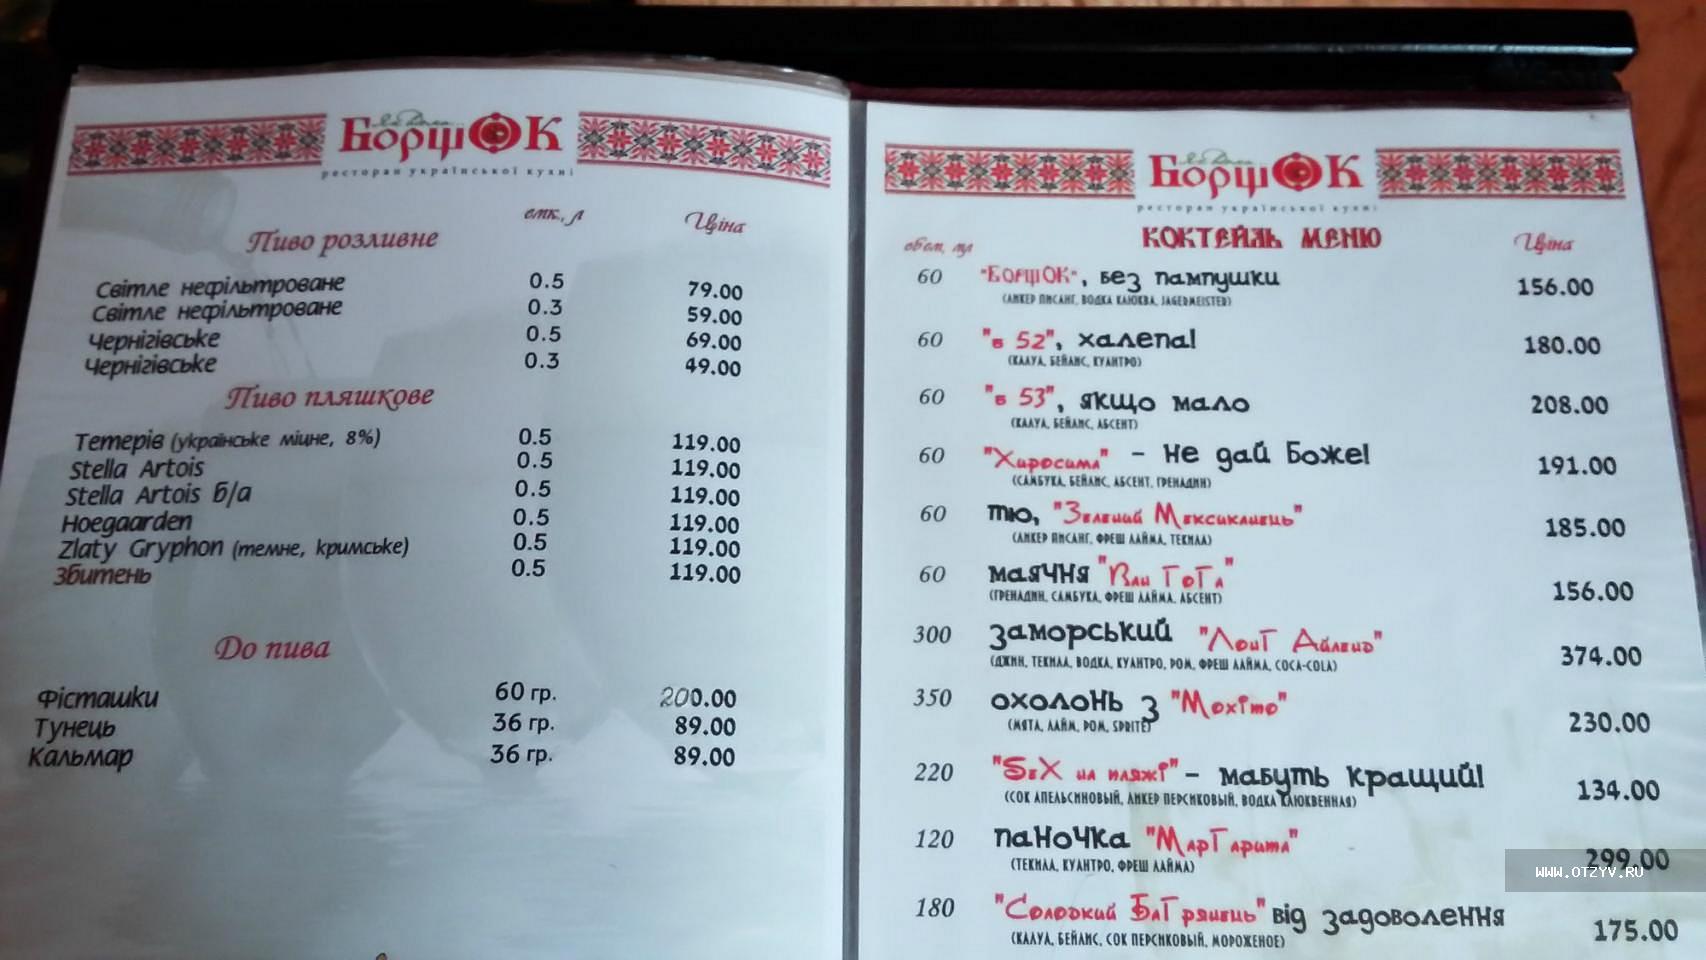 БорщОК
ресторан української кухні
Пиво розливне емк., л Ціна
Світле нефільтроване 0.5 79.00
Світле нефільтроване 0.3 59.00
Чернігівське 0.5 69.00
Чернігівське 0.3 49.00
Пиво пляшкове
Тетерів (українське міцне, 8%) 0.5 119.00
Stella Artois 0.5 119.00
Stella Artois б/а 0.5 119.00
Hoegaarden 0.5 119.00
Zlaty Gryphon (темне, кримське) 0.5 119.00
Збитень 0.5 119.00
До пива
Фісташки 60 гр. 200.00
Тунець 36 гр. 89.00
Кальмар 36 гр. 89.00
БорщОК
ресторан української кухні
обьом, мл КОКТЕЙЛЬ МЕНЮ Ціна
60 "БорщОК", без пампушки 156.00
(ЛИКЕР ПИСАНГ, ВОДКА КЛЮКВА, JAGERMEISTER)
60 "в 52", халепа! 180.00
(КАЛУА, БЕЙЛИС, КУАНТРО)
60 "в 53", якщо мало 208.00
(КАЛУА, БЕЙЛИС, АБСЕНТ)
60 "Хиросима" - не дай Боже! 191.00
(САМБУКА, БЕЙЛИС, АБСЕНТ, ГРЕНАДИН)
60 тю, "Зелений Мексиканець" 185.00
(ЛИКЕР ПИСАНГ, ФРЕШ ЛАЙМА, ТЕКИЛА)
60 маячня "Ван Гога" 156.00
(ГРЕНАДИН, САМБУКА, ФРЕШ ЛАЙМА, АБСЕНТ)
300 заморський "Лонг Айленд" 374.00
(ДЖИН, ТЕКИЛА, ВОДКА, КУАНТРО, РОМ, ФРЕШ ЛАЙМА, COCA-COLA)
350 охолонь з "Мохіто" 230.00
(МЯТА, ЛАЙМ, РОМ, SPRITE)
220 "SeX на пляжі" - мабуть кращий! 134.00
(СОК АПЕЛЬСИНОВЫЙ, ЛИКЕР ПЕРСИКОВЫЙ, ВОДКА КЛЮКВЕННАЯ)
120 паночка "Маргарита" 299.00
(ТЕКИЛА, КУАНТРО, ФРЕШ ЛАЙМА)
WWW.OTZYV.RU
180 "Солодкий Багрянець" від задоволення 175.00
(КАЛУА, БЕЙЛИС, СОК ПЕРСИКОВЫЙ, МОРОЖЕНОЕ)